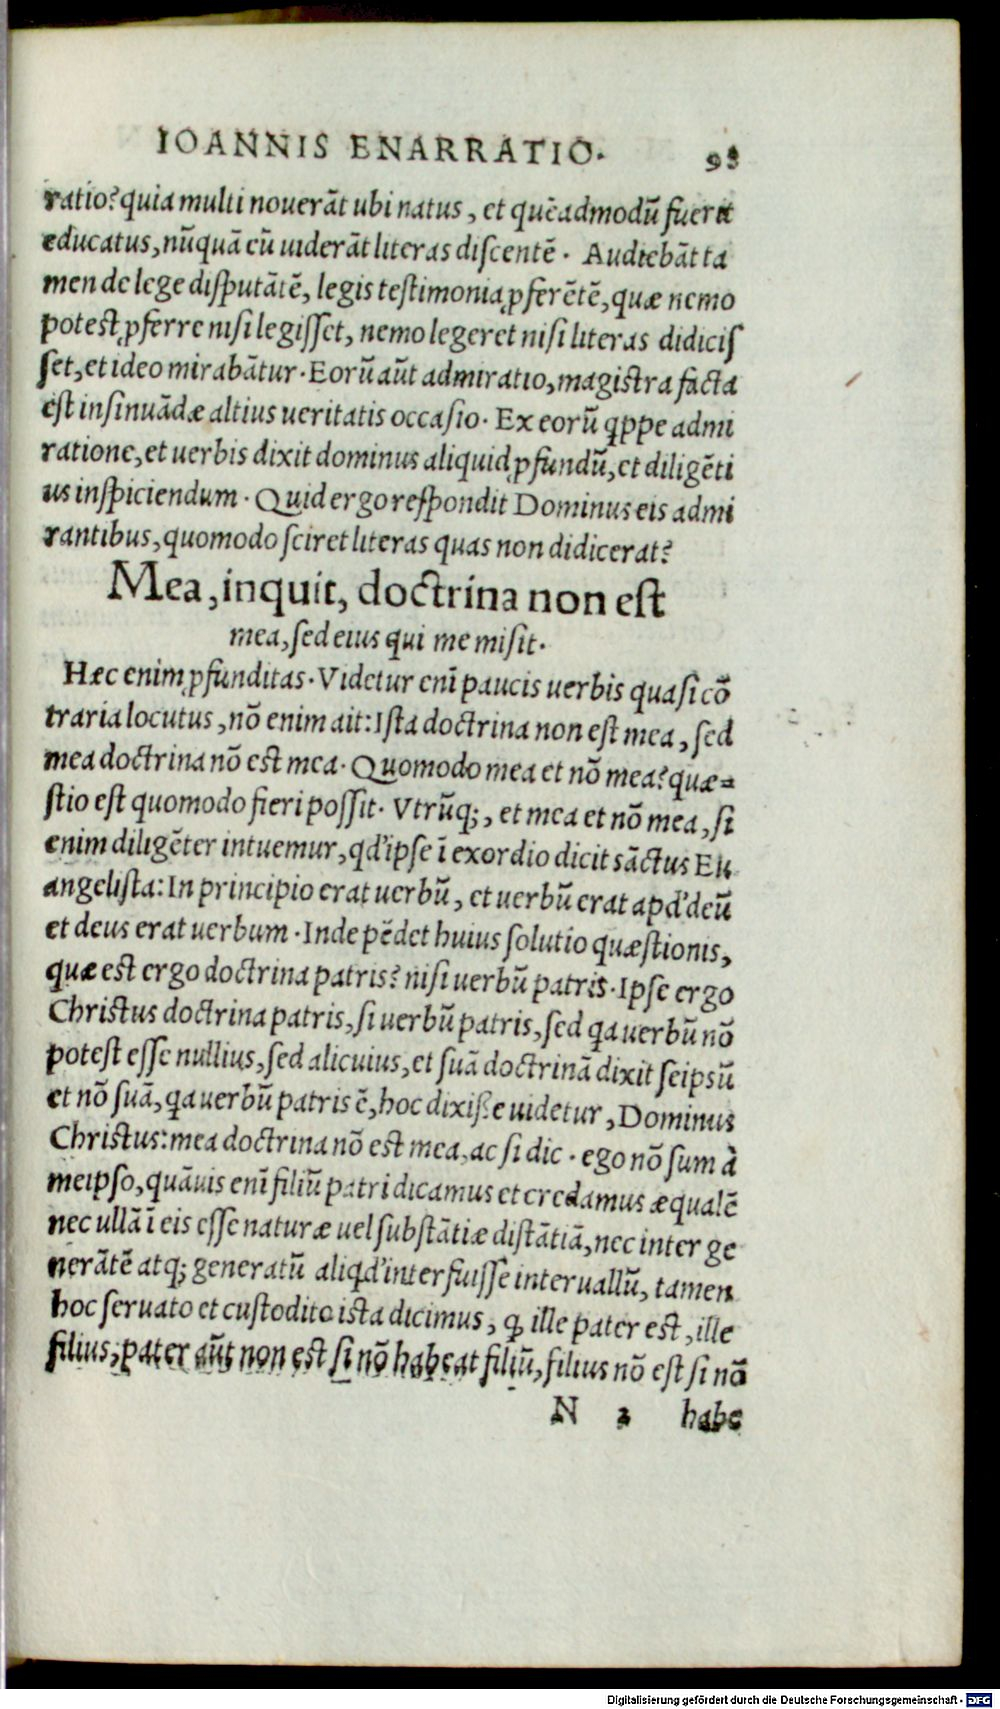 IOANNIS ENARRATIO. 98
ratio? quia multi nouerāt ubi natus, et quēadmodū fuerit
educatus, nūquā eū uiderāt literas discentē. Audiebāt ta
men de lege disputātē, legis testimonia ꝓferētē, quæ nemo
potest ꝓferre nisi legisset, nemo legeret nisi literas didicis
set, et ideo mirabātur. Eorū aūt admiratio, magistra facta
est insinuādæ altius ueritatis occasio. Ex eorū qppe admi
ratione, et uerbis dixit dominus aliquid ꝓfundū, et diligēti
us inspiciendum. Quid ergo respondit Dominus eis admi
rantibus, quomodo sciret literas quas non didicerat?
Mea, inquit, doctrina non est
mea, sed eius qui me misit.
Hæc enim ꝓfunditas. Videtur enī paucis uerbis quasi cō
traria locutus, nō enim ait: Ista doctrina non est mea, sed
mea doctrina nō est mea. Quomodo mea et nō mea? quæ=
stio est quomodo fieri possit. Vtrūq;, et mea et nō mea, si
enim diligēter intuemur, qd' ipse ī exordio dicit sāctus Eu
angelista: In principio erat uerbū, et uerbū erat apd' deū
et deus erat uerbum. Inde pēdet huius solutio quæstionis,
quæ est ergo doctrina patris? nisi uerbū patris. Ipse ergo
Christus doctrina patris, si uerbū patris, sed qa uerbū nō
potest esse nullius, sed alicuius, et suā doctrinā dixit seipsū
et nō suā, qa uerbū patris ē, hoc dixiße uidetur, Dominus
Christus: mea doctrina nō est mea, ac si dic. ego nō sum à
meipso, quāuis enī filiū patri dicamus et credamus æqualē
nec ullā ī eis esse naturæ uel substātiæ distātiā, nec inter ge
nerātē atq; generatū aliqd' interfuisse interuallū, tamen
hoc seruato et custodito ista dicimus, ꝙ ille pater est, ille
filius, pater aūt non est si nō habeat filiū, filius nō est si nō
N 2 habe
Digitalisierung gefördert durch die Deutsche Forschungsgemeinschaft - DFG